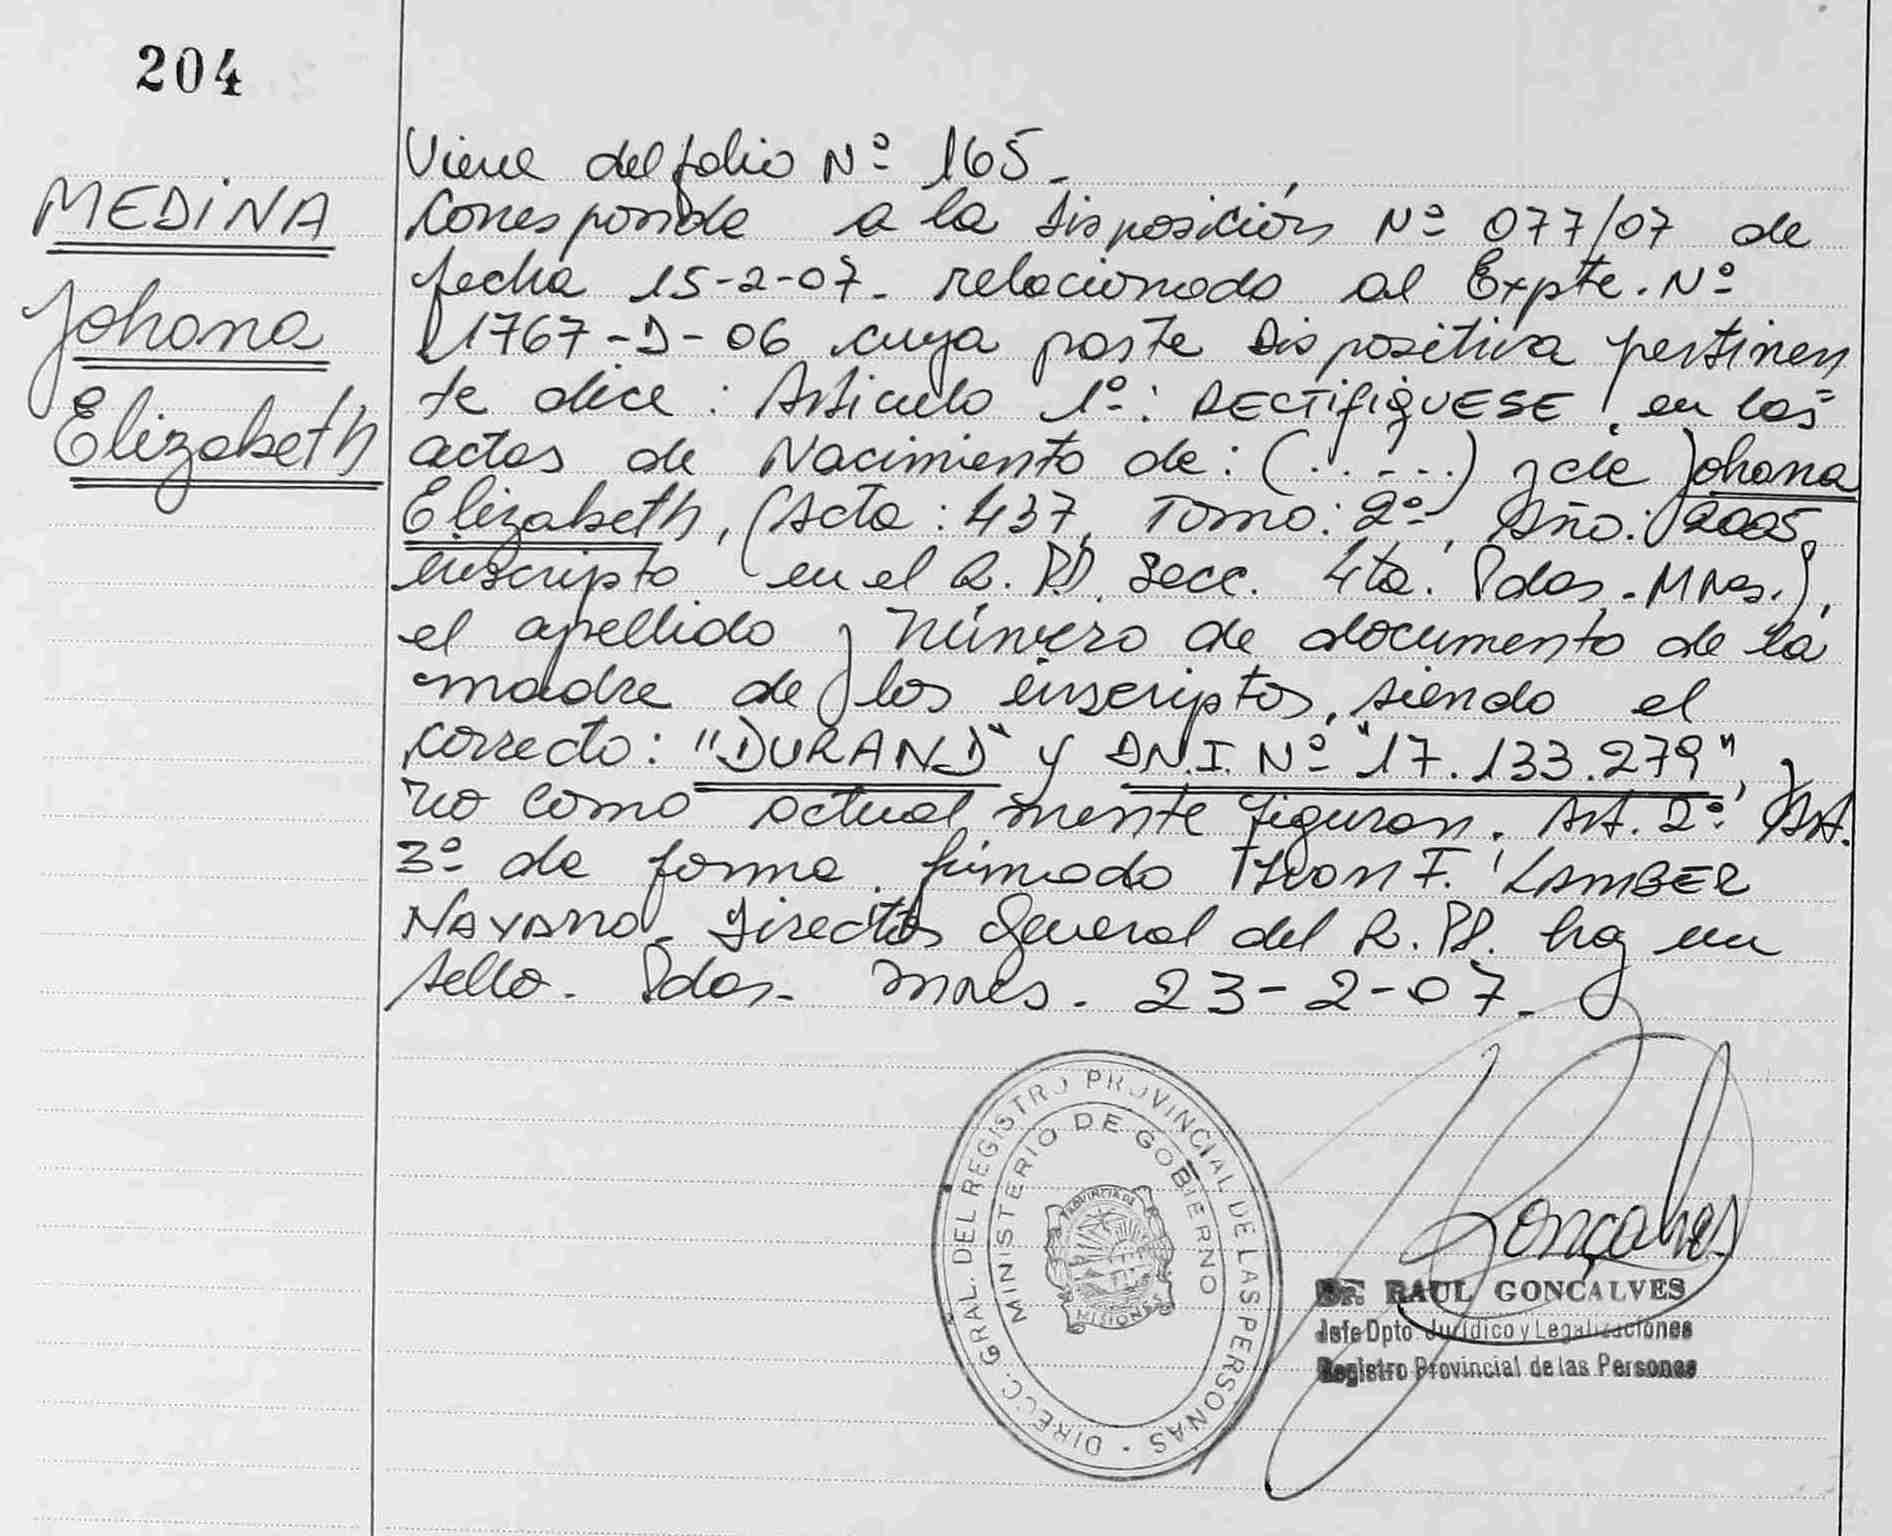 204
MEDINA
Johana
Elizabeth
Viene del folio Nº 165.
Corresponde a la Disposición Nº 077/07 de
fecha 15-2-07. relacionado al Expte. Nº
1767-D-06 cuya parte Dispositiva pertinen
te dice: Articulo 1º: RECTIFIQUESE, en las
actas de Nacimiento de: (......) y de Johana
Elizabeth, (Acta: 437, Tomo: 2º, Año: 2005,
inscripto en el R. PP. Secc. 4ta. Pdas. Mnes.),
el apellido y número de documento de la
madre de los inscriptos, siendo el
correcto: "DURAND" y D.N.I. Nº "17.133.279", y
no como actualmente figuran. Art. 2º y Art.
3º de forma. firmado Ivan F. LAMBER
NAVARRO. Director General del R. PP. hay un
sello. Pdas. Mnes. 23-2-07.
DIRECC. GRAL. DEL REGISTRO PROVINCIAL DE LAS PERSONAS
MINISTERIO DE GOBIERNO
PROVINCIA DE
MISIONES
Goncalves
Dr. RAUL GONCALVES
Jefe Dpto. Jurídico y Legalizaciones
Registro Provincial de las Personas